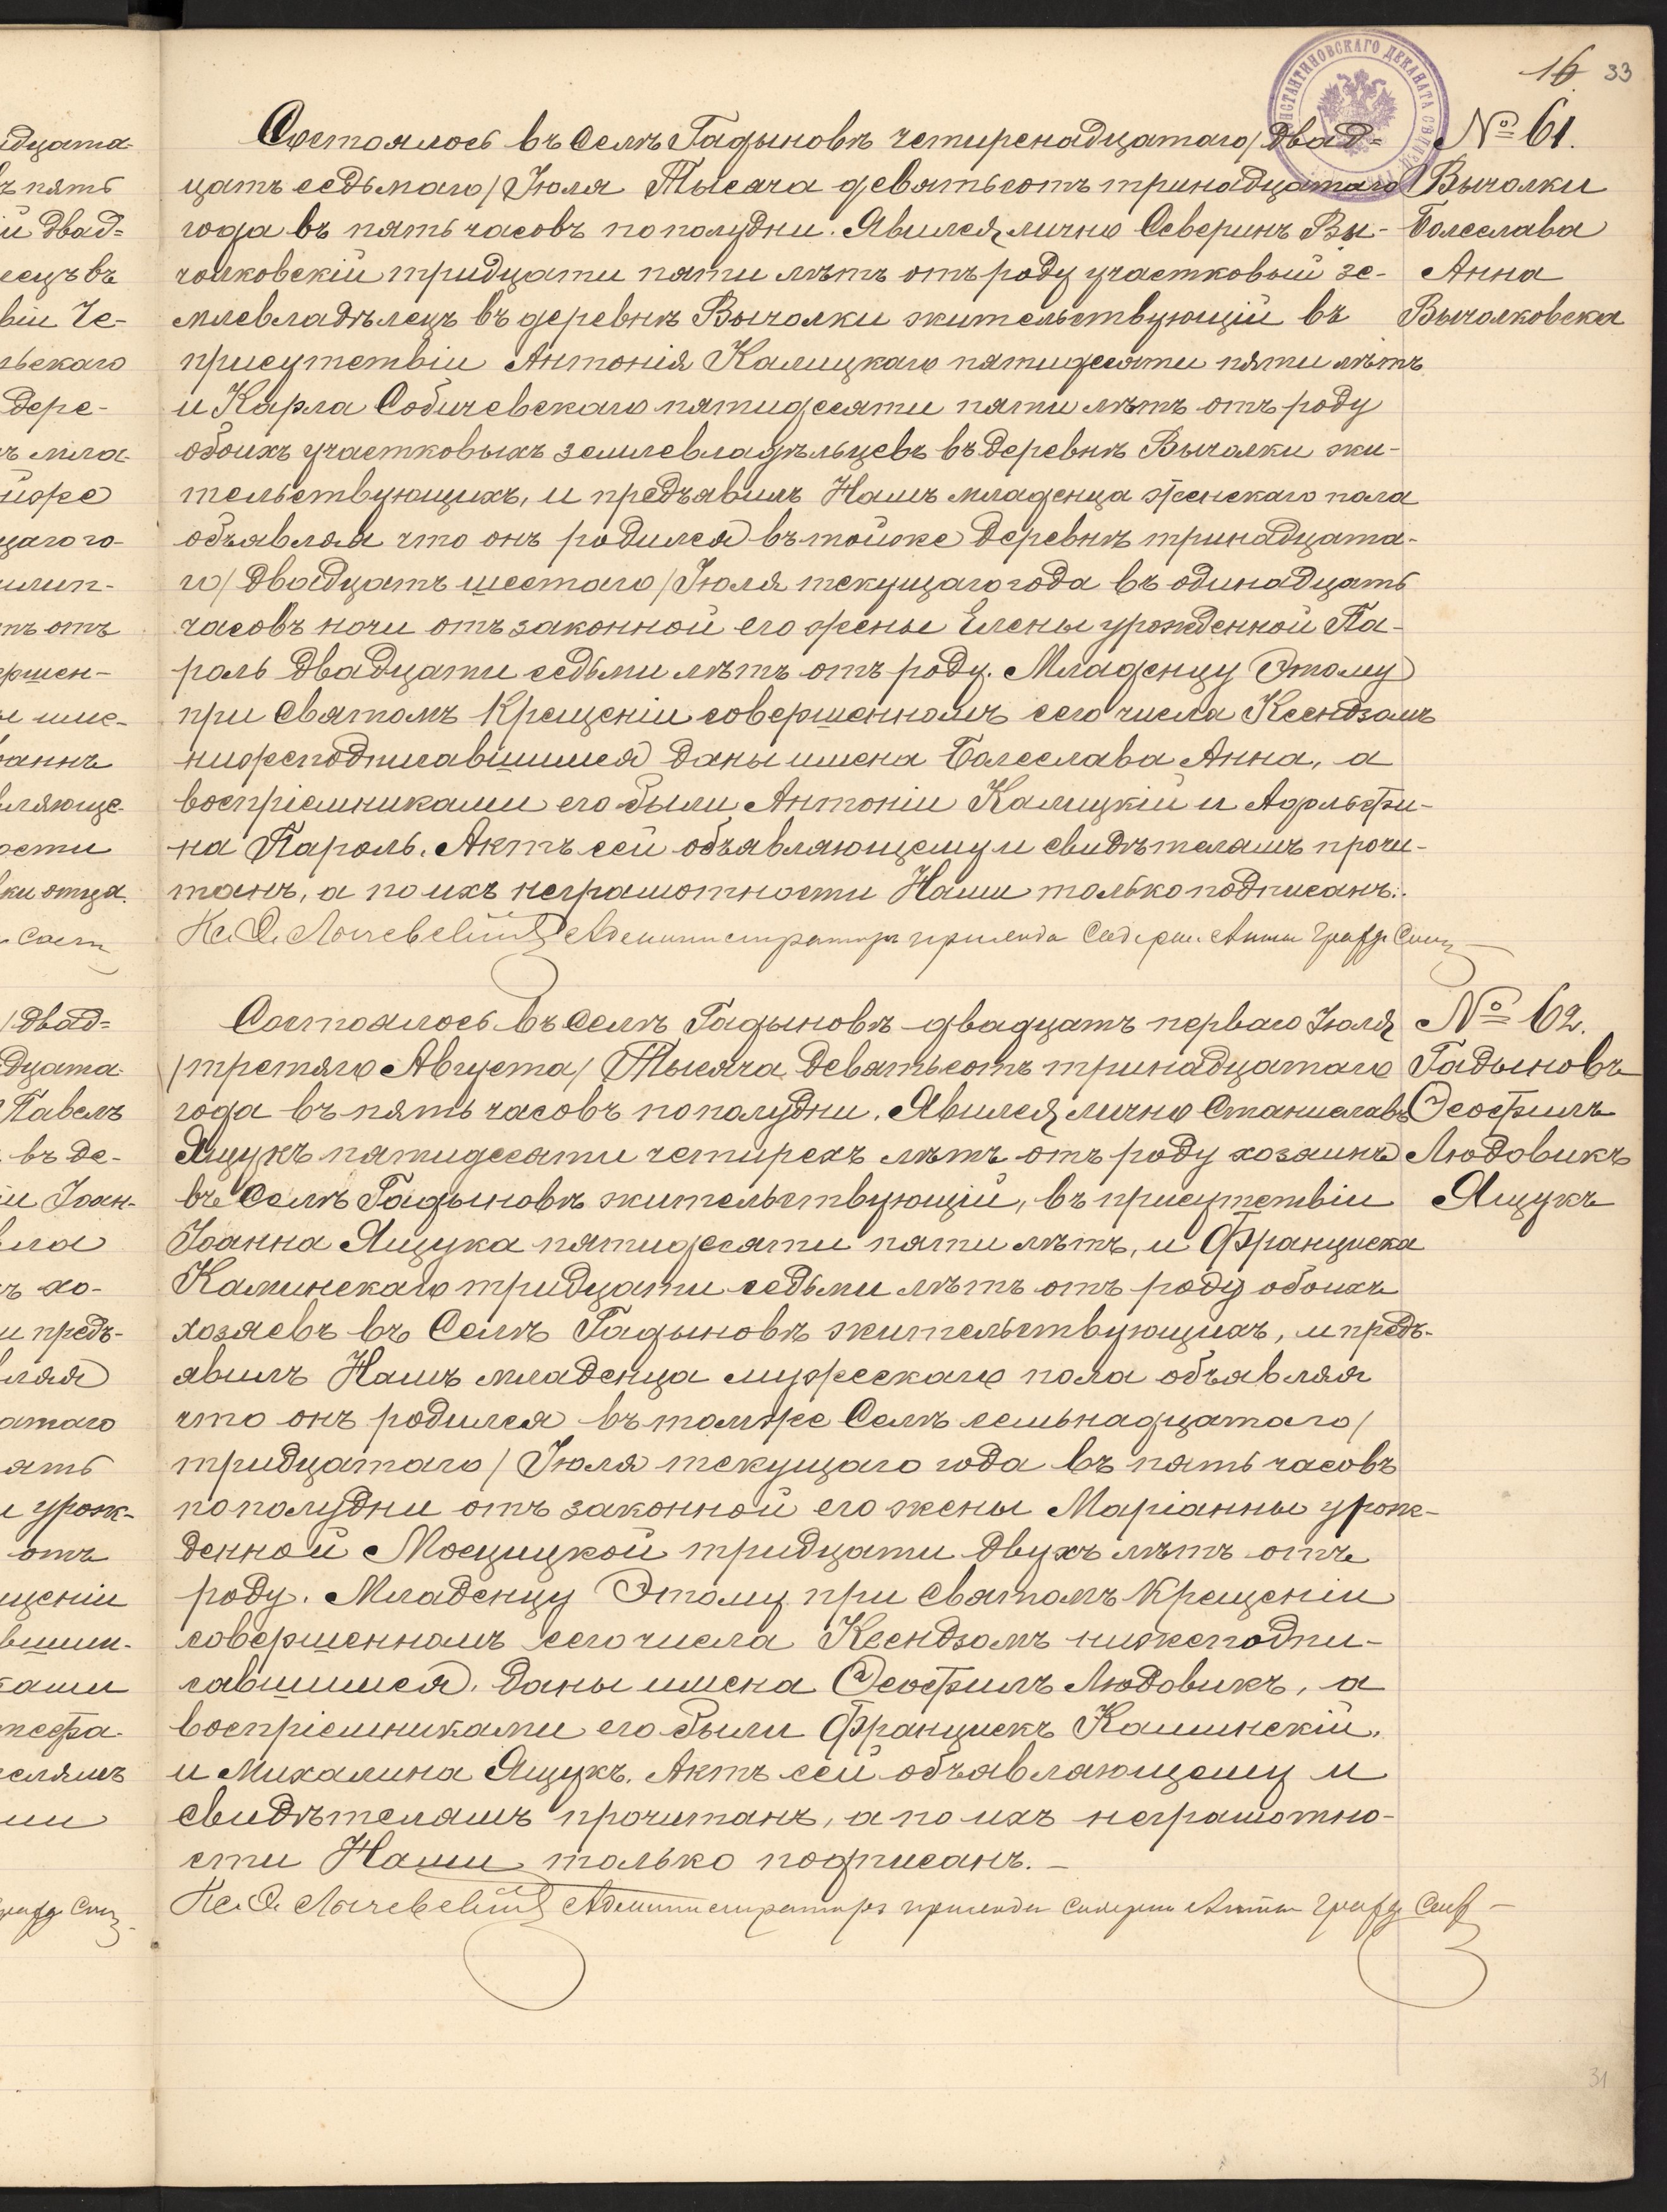 16 33
КОНСТАНТИНОВСКАГО ДЕКАНАТА
Состоялось въ Селѣ Гадыновѣ четыренадцатаго / двад=
цать седьмаго / Іюля Тысяча девятьсотъ тринадцатаго
года въ пять часовъ пополудни. Явился лично Северинъ Вы-
чолковскій тридцати пяти лѣтъ отъ роду участковый зе-
млевладѣлецъ въ деревнѣ Вычолки жительствующій въ
присутствіи Антонія Калицкаго пятидесяти пяти лѣтъ
и Карла Собичевскаго пятидесяти пяти лѣтъ отъ роду
обоихъ участковыхъ землевладѣльцевъ въ деревнѣ Вычолки жи-
тельствующихъ, и предъявилъ Намъ младенца женскаго пола
объявляя что онъ родился въ тойже деревнѣ тринадцата-
го / двадцать шестаго / Іюля текущаго года въ одинадцать
часовъ ночи отъ законной его жены Елены урожденной Па-
роль двадцати седьми лѣтъ отъ роду. Младенцу Этому
при Святомъ Крещеніи совершенномъ сего числа Ксендзомъ
нижеподписавшимся даны имена Болеслава Анна, а
воспріемниками его были Антоній Калицкій и Адольфи-
на Пароль. Актъ сей объявляющему и свидѣтелямъ прочи-
танъ, а по ихъ неграмотности Нами только подписанъ.
Администраторъ прихода
№ 61.
Вычолки
Болеслава
Анна
Вычолковска
Состоялось въ Селѣ Гадыновѣ двадцать перваго Іюля
/ третяго Августа / Тысяча девятьсотъ тринадцатаго
года въ пять часовъ пополудни. Явился лично Станиславъ
Ящукъ пятидесяти четырехъ лѣтъ отъ роду хозяинъ
въ Селѣ Гадыновѣ жительствующій, въ присутствіи
Іоанна Ящука пятидесяти пяти лѣтъ, и Франциска
Каминскаго тридцати седьми лѣтъ отъ роду обоихъ
хозяевъ въ Селѣ Гадыновѣ жительствующихъ, и предъ-
явилъ Намъ младенца мужескаго пола объявляя
что онъ родился въ томже Селѣ семьнадцатаго /
тридцатаго / Іюля текущаго года въ пять часовъ
пополудни отъ законной его жены Маріанны урож-
денной Мосцицкой тридцати двухъ лѣтъ отъ
роду. Младенцу Этому при Святомъ Крещеніи
совершенномъ сего числа Ксендзомъ нижеподпи-
савшимся, даны имена Ѳеофилъ Людовикъ, а
воспріемниками его были Францискъ Каминскій
и Михалина Ящукъ. Актъ сей объявляющему и
свидѣтелямъ прочитанъ, а по ихъ неграмотно-
сти Нами только подписанъ. –
Администраторъ прихода
№ 62.
Гадыновъ
Ѳеофилъ
Людовикъ
Ящукъ
31